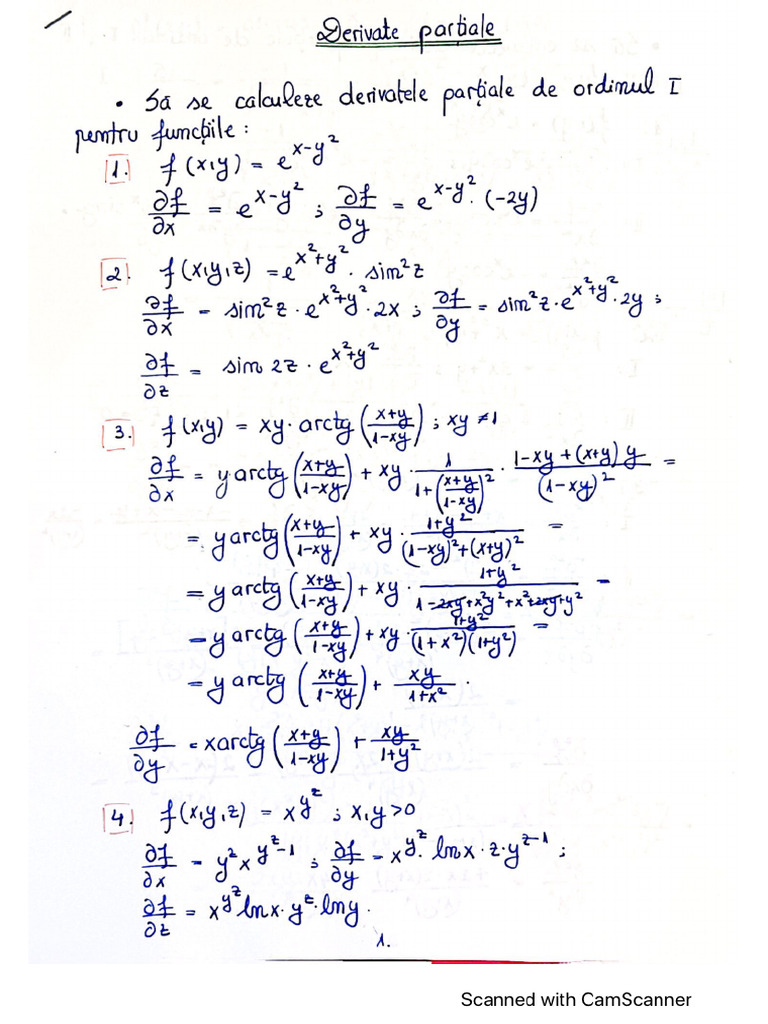 Derivate parțiale
• Să se calculeze derivatele parțiale de ordinul I
pentru funcțiile:
1. f(x,y) = e^{x-y²}
∂f/∂x = e^{x-y²} ; ∂f/∂y = e^{x-y²}·(-2y)
2. f(x,y,z) = e^{x²+y²} · sin²z
∂f/∂x = sin²z · e^{x²+y²} · 2x ; ∂f/∂y = sin²z · e^{x²+y²} · 2y ;
∂f/∂z = sin 2z · e^{x²+y²}
3. f(x,y) = xy · arctg((x+y)/(1-xy)) ; xy ≠ 1
∂f/∂x = y arctg((x+y)/(1-xy)) + xy · 1/(1+((x+y)/(1-xy))²) · (1-xy+(x+y)y)/(1-xy)² =
= y arctg((x+y)/(1-xy)) + xy · (1+y²)/((1-xy)²+(x+y)²) =
= y arctg((x+y)/(1-xy)) + xy · (1+y²)/(1-2xy+x²y²+x²+2xy+y²) =
= y arctg((x+y)/(1-xy)) + xy · (1+y²)/((1+x²)(1+y²)) =
= y arctg((x+y)/(1-xy)) + xy/(1+x²) .
∂f/∂y = x arctg((x+y)/(1-xy)) + xy/(1+y²)
4. f(x,y,z) = x^{y^z} ; x,y > 0
∂f/∂x = y^z x^{y^z-1} ; ∂f/∂y = x^{y^z} · ln x · z · y^{z-1} ;
∂f/∂z = x^{y^z} ln x · y^z · ln y .
1.
Scanned with CamScanner